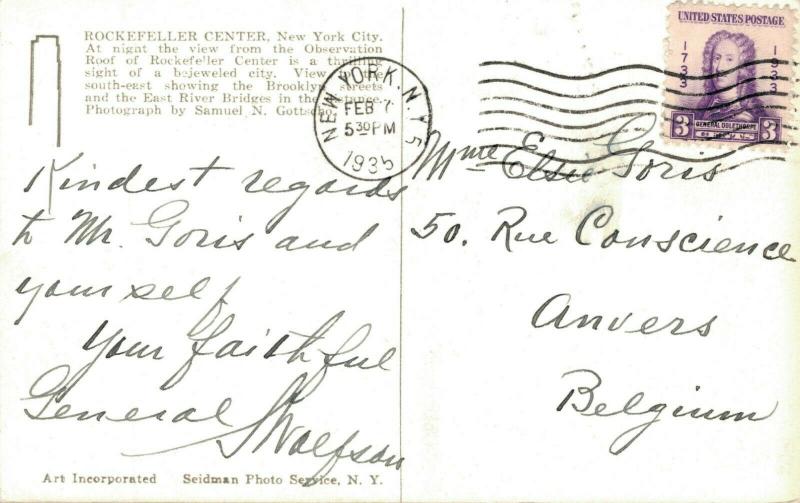 ROCKEFELLER CENTER, New York City.
At night the view from the Observation
Roof of Rockefeller Center is a thrilling
sight of a bejeweled city. View the
south-east showing the Brooklyn streets
and the East River Bridges in the distance.
Photograph by Samuel N. Gottscho
NEW YORK, N.Y. 5
FEB 7
5 30 PM
1935
UNITED STATES POSTAGE
1733
1933
3
GENERAL OGLETHORPE
3
Kindest regards
to Mr. Goris and
yourself
Your faithful
General
SWolfson
Mme Elsie Goris
50. Rue Conscience
Anvers
Belgium
Art Incorporated Seidman Photo Service, N. Y.